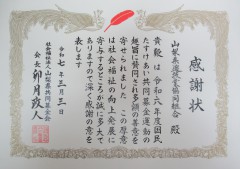 感謝状
山梨県遊技業協同組合 殿
貴殿は令和六年度国民
たすけあい共同募金運動の
趣旨に賛同され多額の善意を
寄せられました この厚意
は社会福祉の向上発展に
寄与するところが誠に多大で
ありますので深く感謝の意を
表します
令和七年三月三日
社会福祉法人 山梨県共同募金会
会長